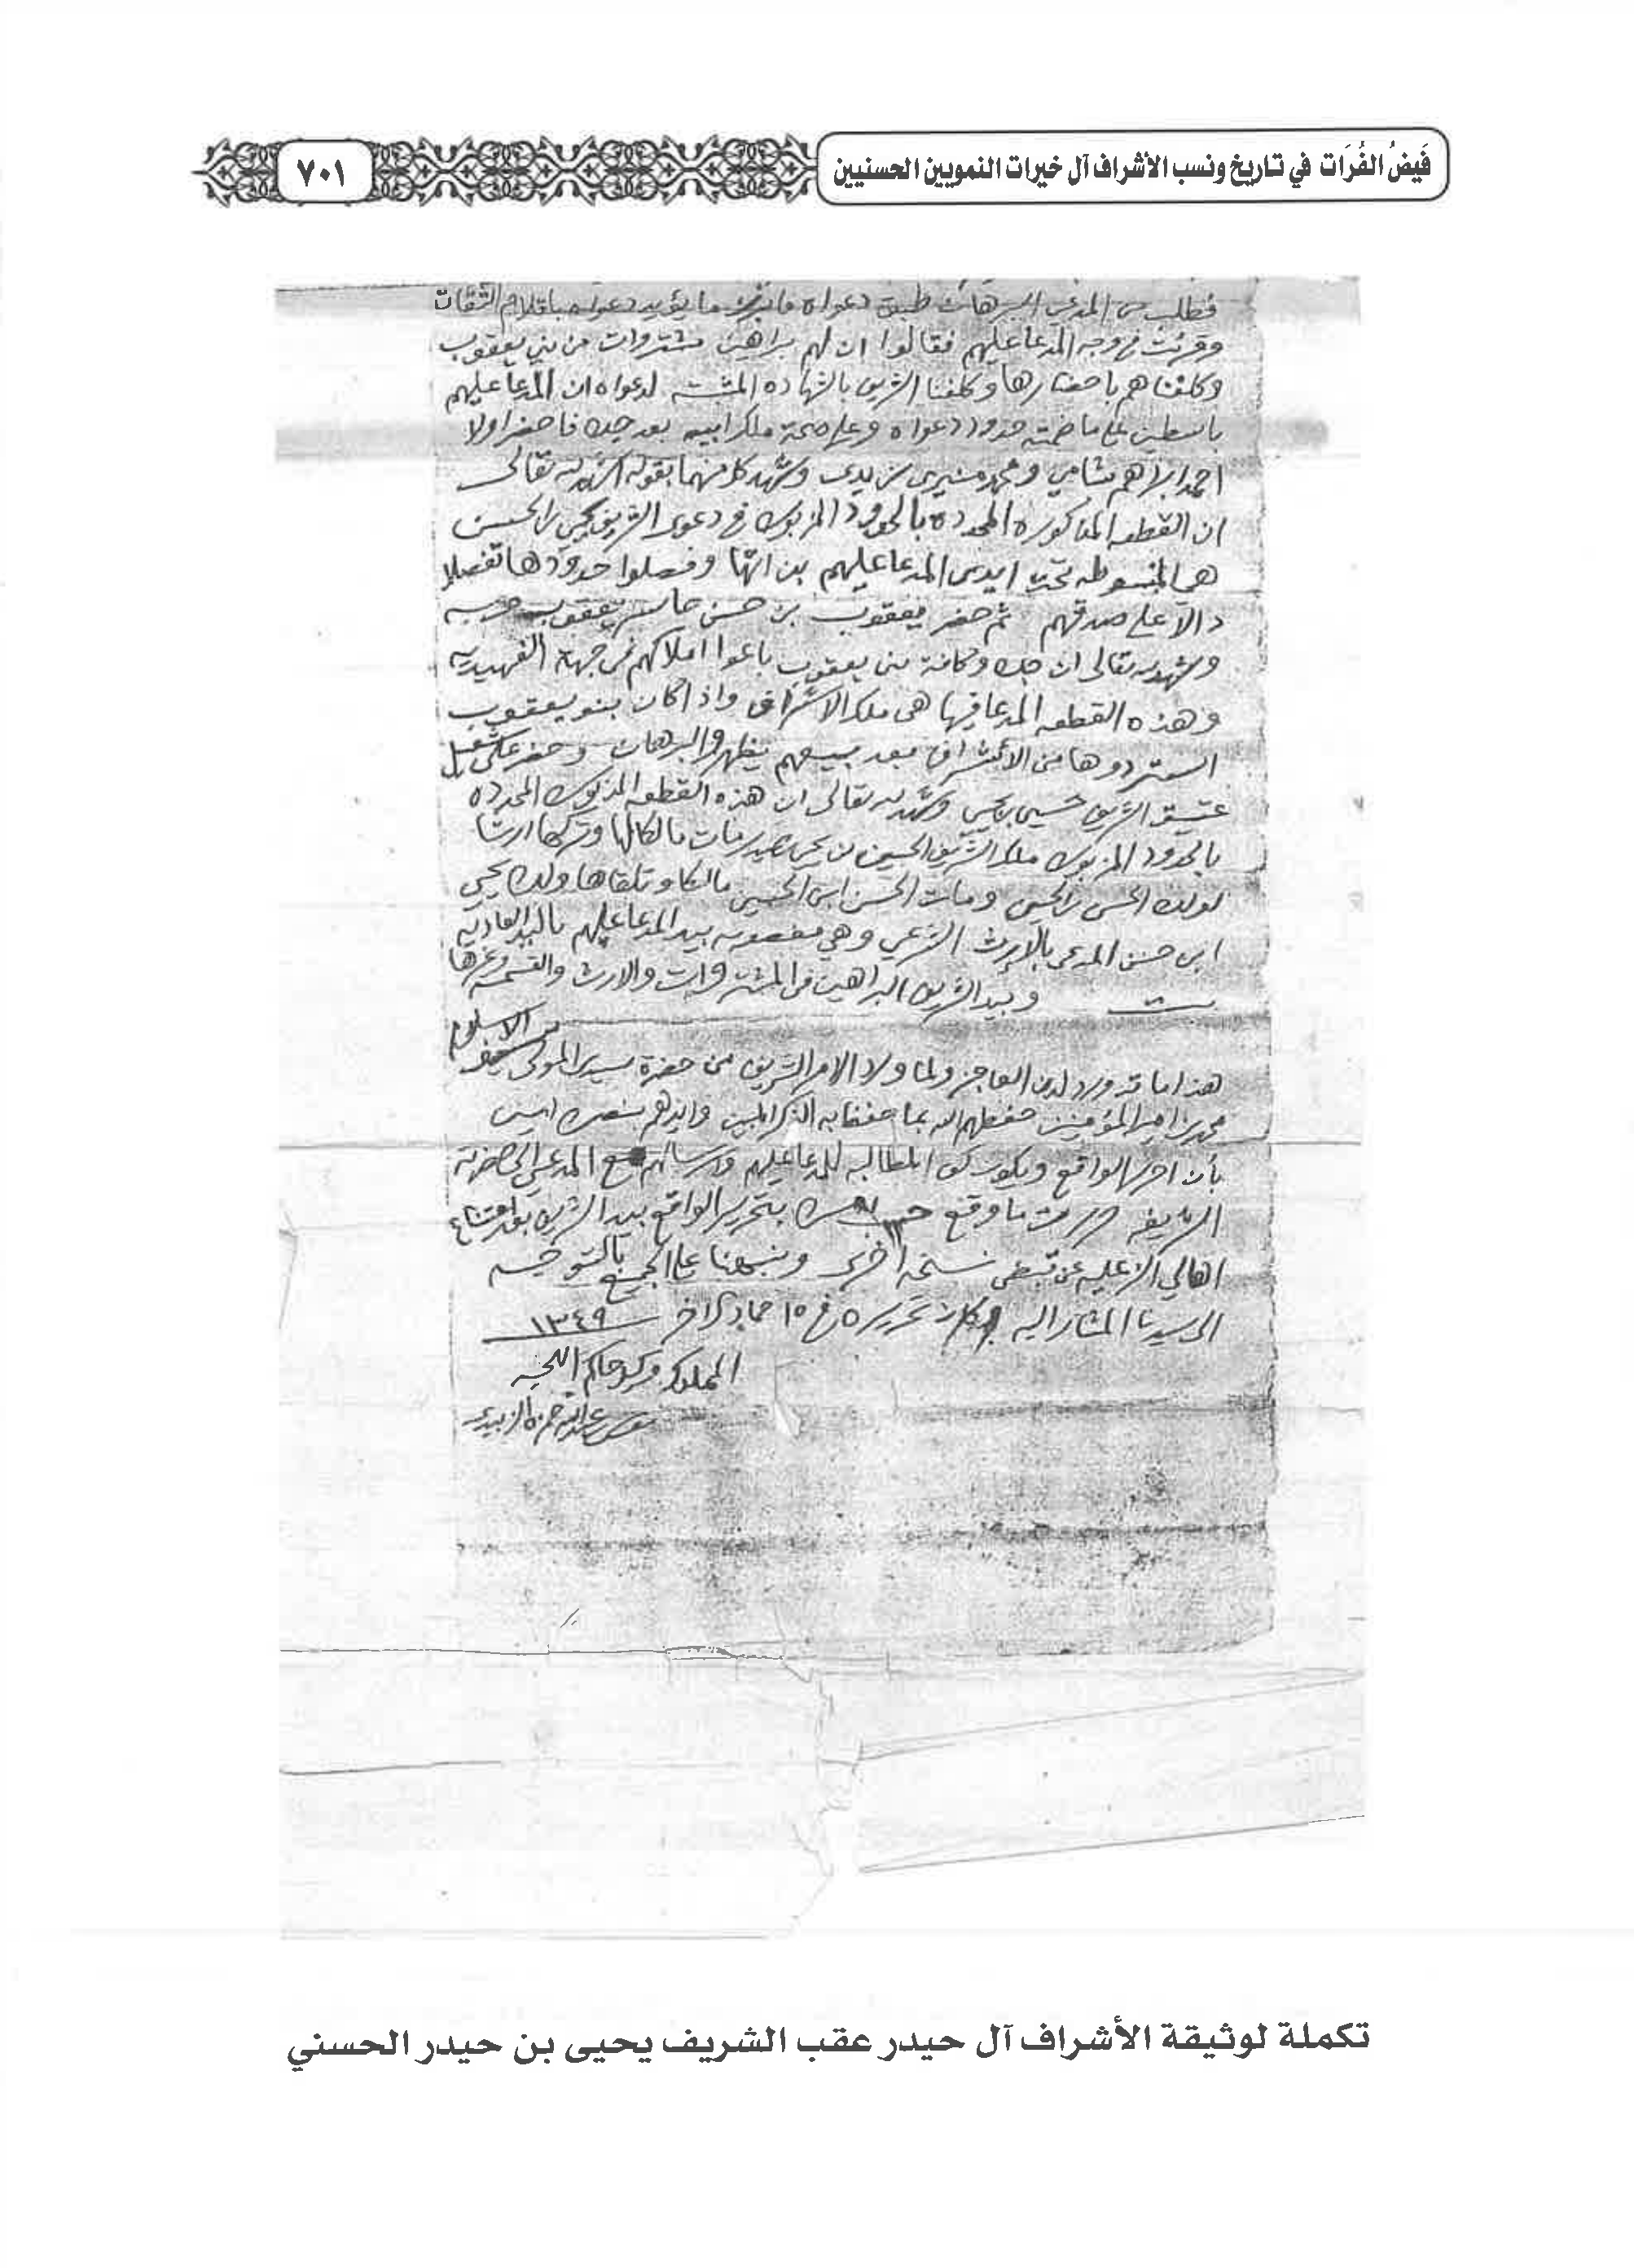 فَيضُ الفُرَات في تاريخ ونسب الأشراف آل خيرات النمويين الحسنيين
٧٠١
فطلب من المدعي البرهان طبق دعواه فابرز ما يؤيد دعواه باقلام الثقات
وقرئت في وجه المدعا عليهم فقالوا ان لهم براهين مشتروات من بني يعقوب
وكلفناهم باحضارها وكلفنا الشريف بالشهاده المثبته لدعواه ان المدعا عليهم
باسطين على ما ضمته حدود دعواه وعلى صحة ملك ابيه بعد جده فاحضر اولا
احمد ابراهم شامي ومحمد وشهد كل منهما بقوله اشهد لله تعالى
ان القطعه المذكوره المحدده بالحدود المزبوره في دعوى الشريف يحيى بن الحسن
هي المبسوطه تحت ايدي المدعا عليهم وفصلوا حدودها تفصيلا
دالا على صدقهم ثم حضر يعقوب بن حسن يعقوب
وشهد لله تعالى ان جده وكافة بني يعقوب باعوا املاكهم في جهة
وهذه القطعه المدعا فيها هي ملك الاشراف واذا كان بنو يعقوب
استردوها من الاشراف بعد بيعهم يظهروا البرهان وحضر
عتيق الشريف حسين بن يحيى وشهد لله تعالى ان هذه القطعه المذكوره المحدده
بالحدود المزبوره ملك الشريف الحسين بن يحيى حيدر مات مالكا لها وتركها ارثا
لولده الحسن بن الحسين ومات الحسن ابن الحسين مالكا وتلقاها ولده يحيى
ابن حسن المدعي بالإرث الشرعي وهي مغصوبه بيد المدعا عليهم باليد العاديه
وبيد الشريف البراهين في المشتروات والارث والقسمه وغيرها
هذا ما قد ورد لدى العاجز ولما ورد الامر الشريف من حضرة سيدي المولى سيف الاسلام
محمد بن امير المؤمنين حفظهم الله بما حفظ به الذكر المبين وايدهم بنصره امين
بأن احرر الواقع ويكون المطالبه للمدعا عليهم وارسالهم مع المدعي الى حضرته
الشريفه حررت ما وقع بتحرير الواقع بيد الشريف بعد امتناع
اهالي عن قبض نسخه اخرى ونبهنا على الجميع بالتوجيه
الى سيدنا المشار اليه وكان تحريره في ١٥ جماد آخر ١٣٤٩
المملوك حاكم اللحيه
عبدالله حمزه الزبيدي
تكملة لوثيقة الأشراف آل حيدر عقب الشريف يحيى بن حيدر الحسني